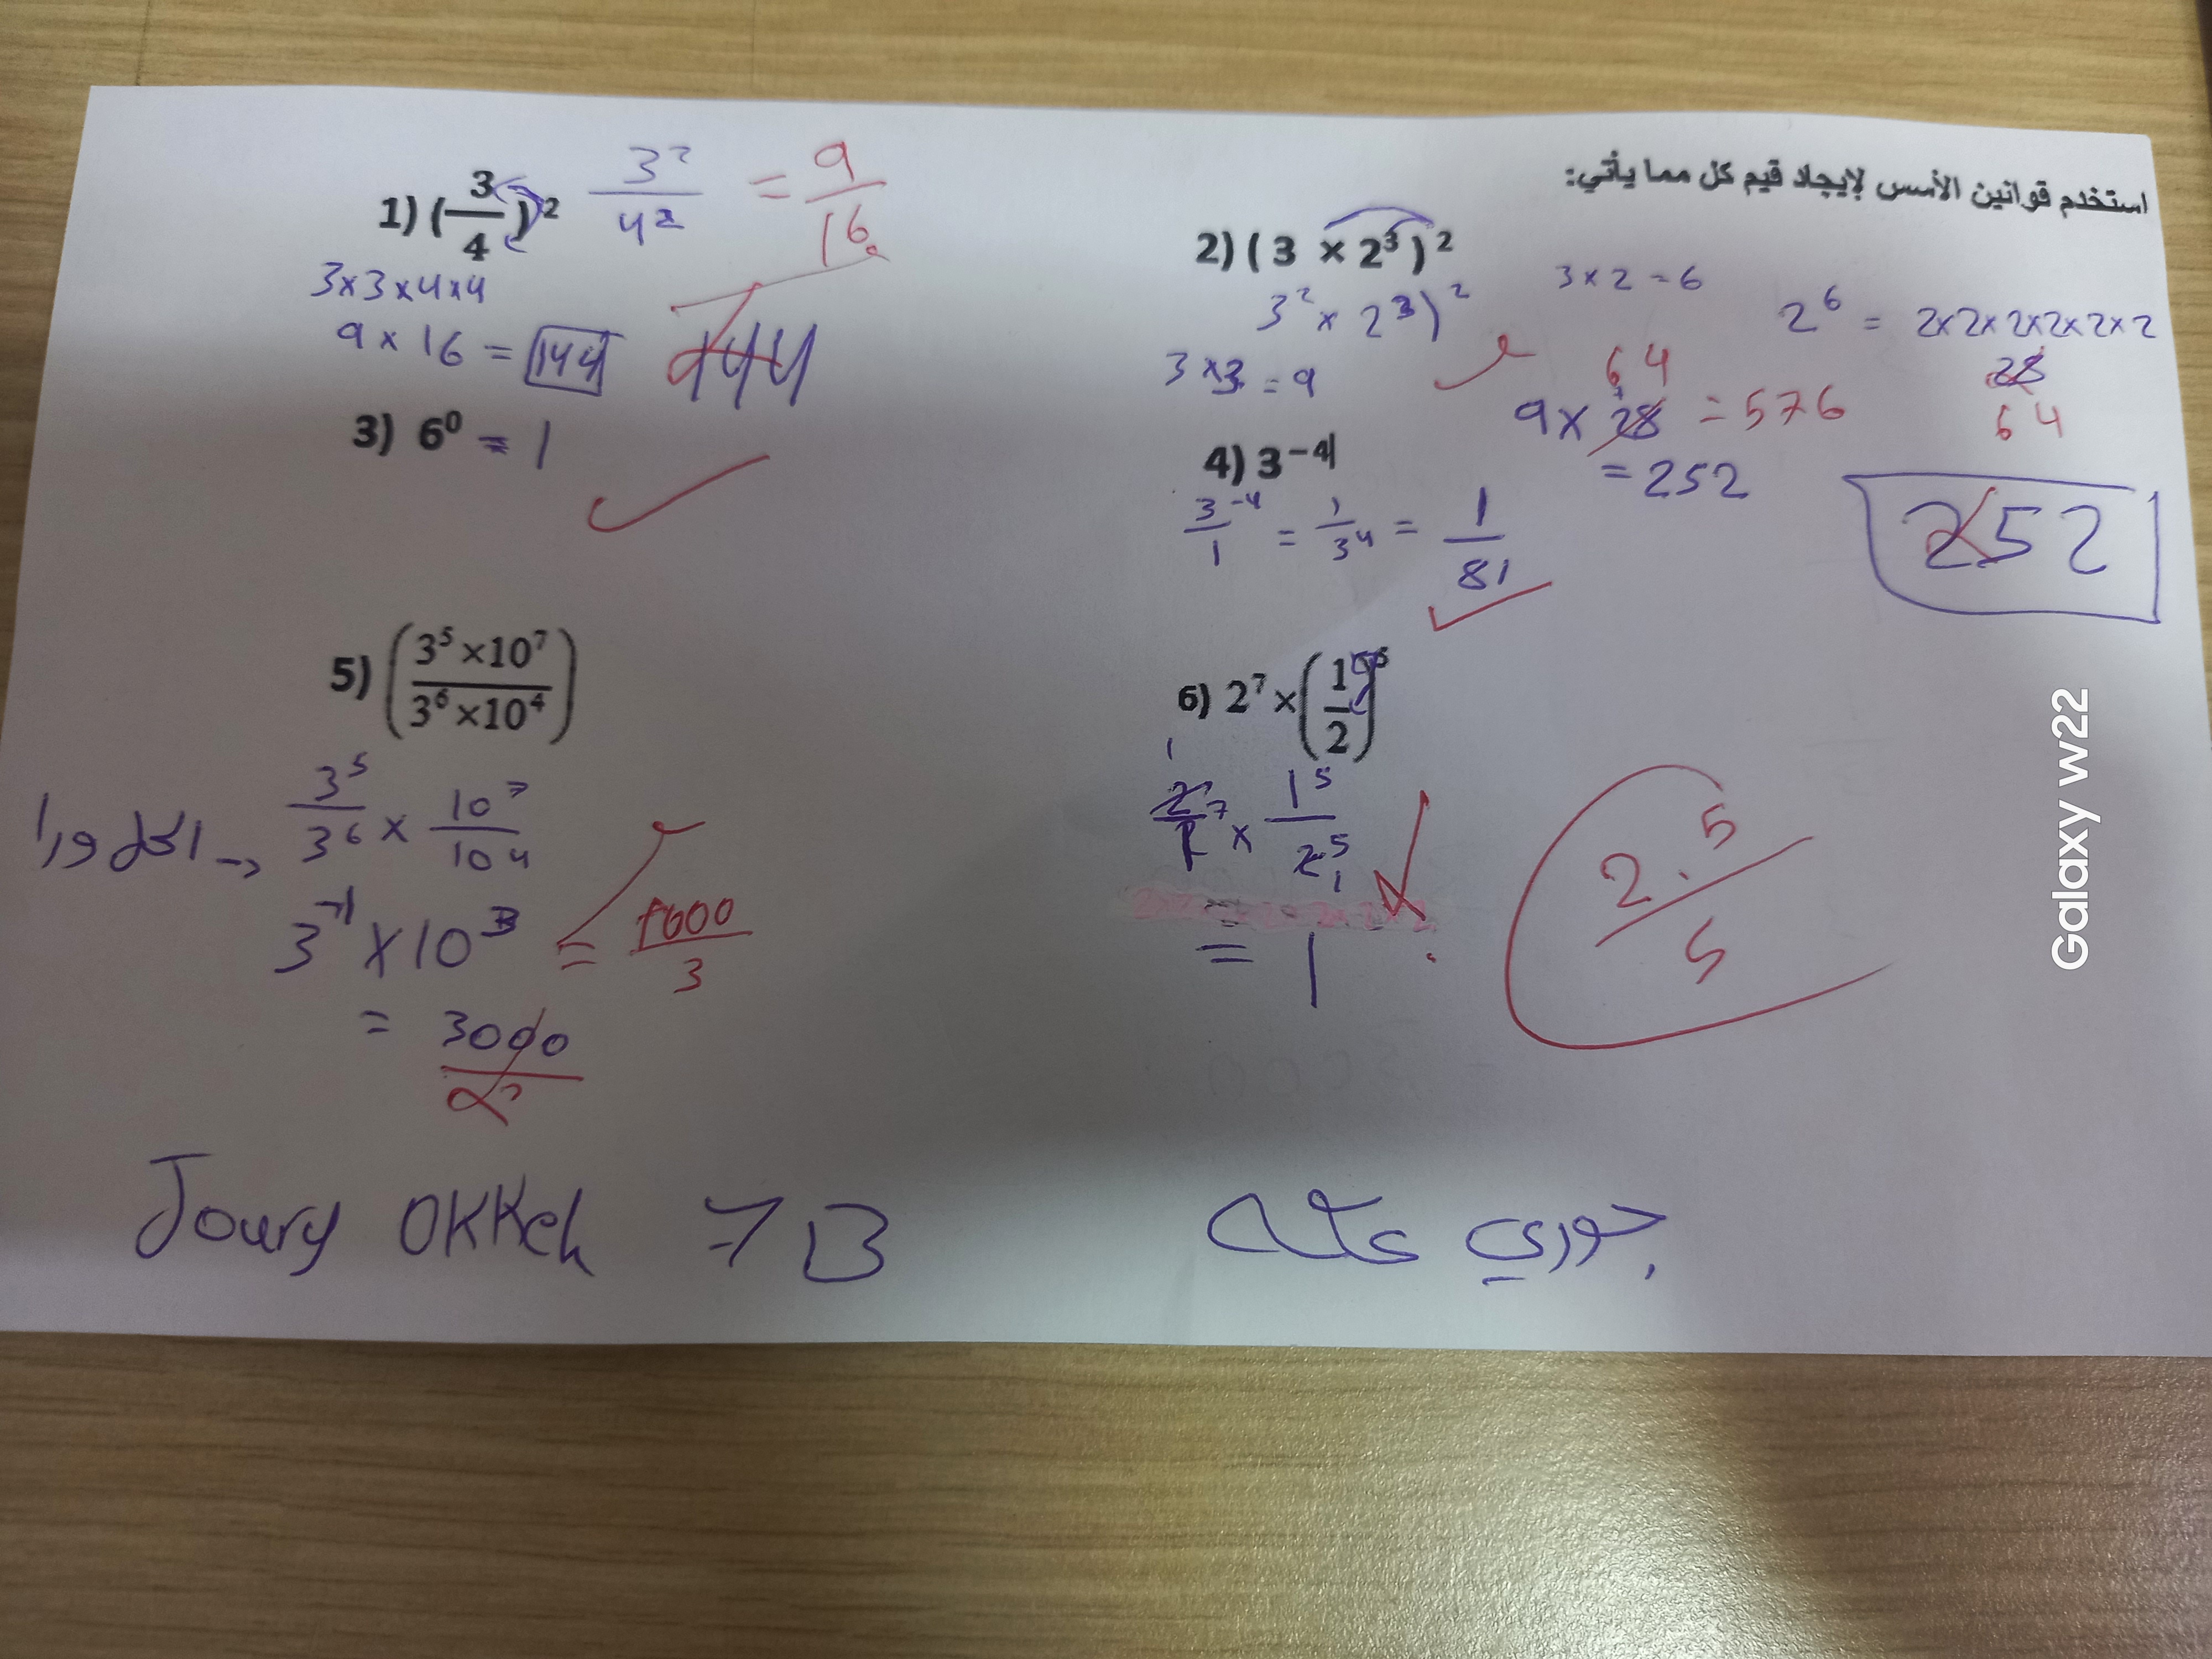 استخدم قوانين الأسس لإيجاد قيم كل مما يأتي:
1) (3/4)² 3²/4² = 9/16
3×3×4×4
9 × 16 = 144 144
2) (3 × 2³)²
3² × 2³)² 3×2=6 2⁶ = 2×2×2×2×2×2
3×3=9 28
64 64
9 × 28 = 576
= 252
252
3) 6⁰ = 1
4) 3⁻⁴
3⁻⁴/1 = 1/3⁴ = 1/81
5) (3⁵×10⁷/3⁶×10⁴)
3⁵/3⁶ × 10⁷/10⁴
3⁻¹ × 10³ = 1000/3
= 3000
6) 2⁷×(1/2)⁵
1
2⁷/1 × 1⁵/2⁵
1
= 1
2.5/5
Joury OKKeh 7B
جوري عكه
Galaxy W22